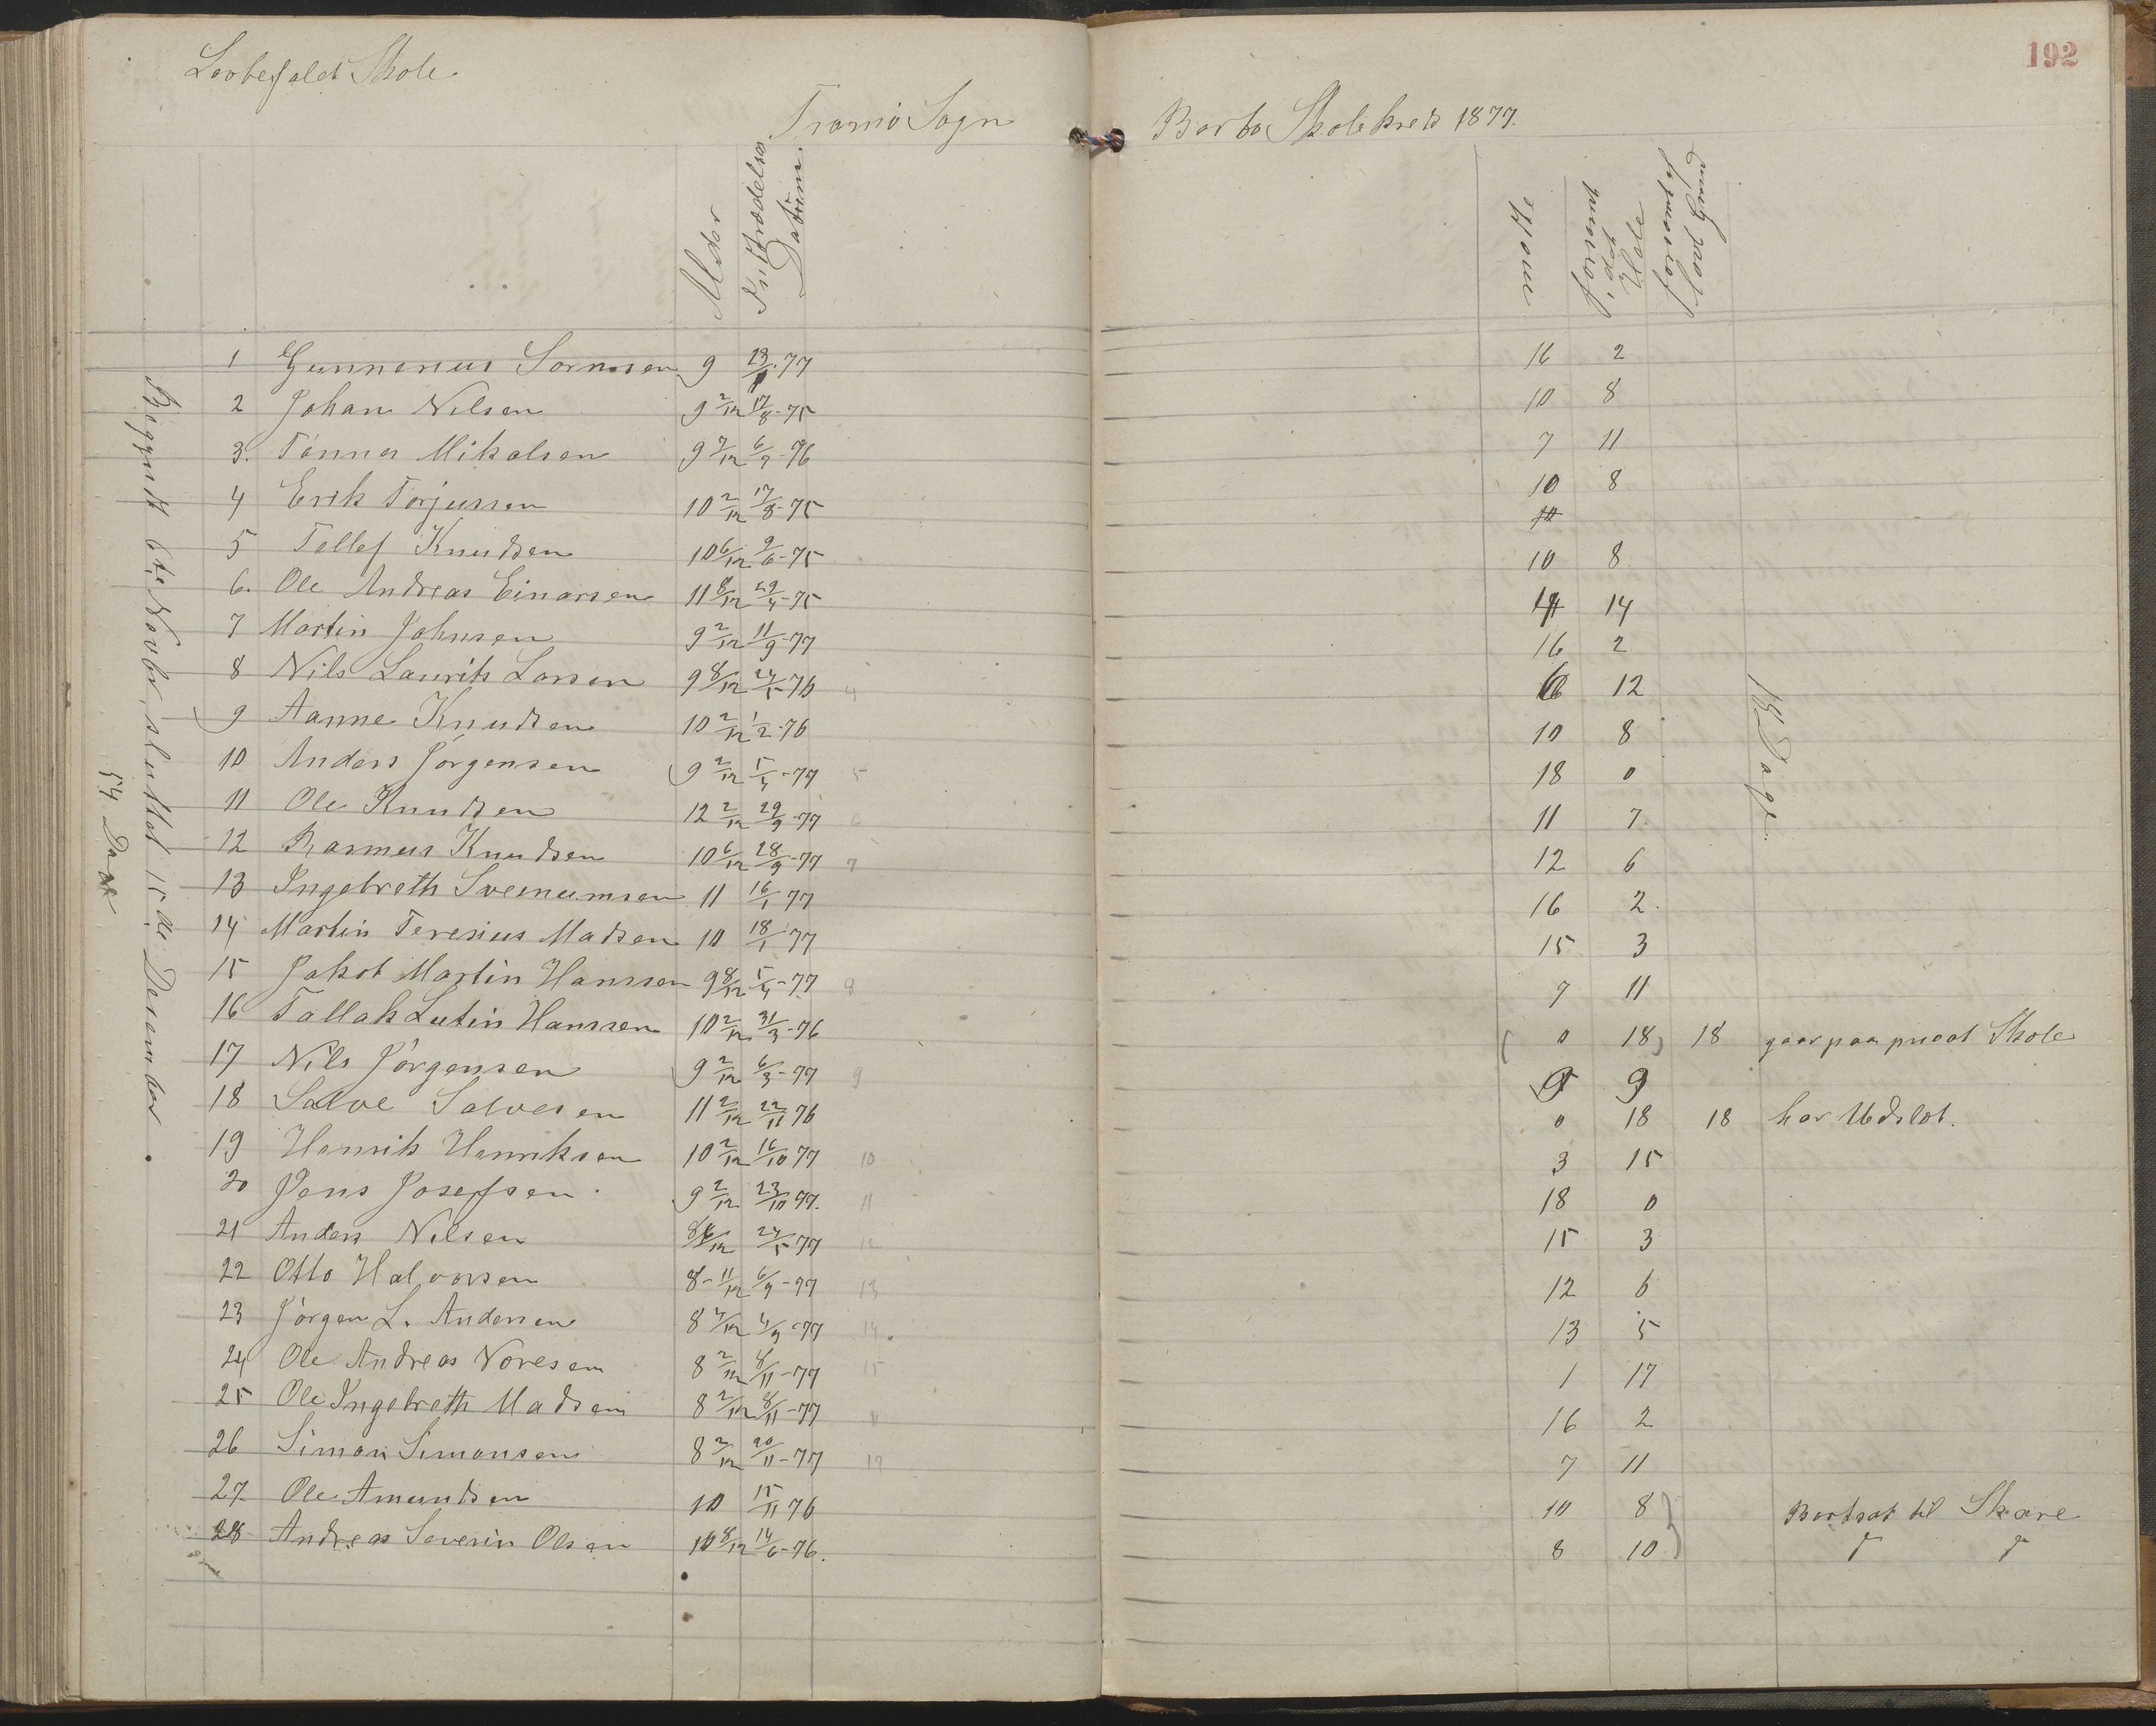 192
Skole
Tromø Sogn
Barbo Skolekreds 1877.
Alder
Indtrædelses
Datum.
Mødt
forsømt
i det
Hele
forsømt
uden
Begyndt 6te Novbr, sluttet 15de Desember.
54 Dage
18 Dage
1 Gunnerius Sørensen 9 23/1 77 16 2
2 Johan Nilsen 9 2/12 17/8-75 10 8
3. Tønnes Mikalsen 9 7/12 6/9-76 7 11
4 Erik Torjussen 10 2/12 17/8-75 10 8
5 Tellef Knudsen 10 6/12 9/6-75 10 8
6. Ole Andreas Einarsen 11 8/12 29/4-75 4 14
7 Martin Johnsen 9 2/12 11/9-77 16 2
8 Nils Laurits Larsen 9 8/12 24/5-76 4 6 12
9 Aanne Knudsen 10 2/12 1/2-76 10 8
10 Anders Jørgensen 9 2/12 5/4-77 5 18 0
11 Ole Knudsen 12 2/12 29/9-77 6 11 7
12 Rasmus Knudsen 10 6/12 28/9-77 7 12 6
13 Ingebreth Sveinumsen 11 16/1 77 16 2
14 Martin Teresius Madsen 10 18/1 77 15 3
15 Jakob Martin Hanssen 9 8/12 5/4-77 8 7 11
16 Tallak Lutin Hanssen 10 2/12 31/3-76 (0 18) 18 gaar paa privat Skole
17 Nils Jørgensen 9 2/12 6/3-77 9 9 9
18 Salve Salvesen 11 2/12 22/11 76 0 18 18 har Udslet.
19 Henrik Henriksen 10 2/12 16/10 77 10 3 15
20 Jens Josefsen 9 2/12 23/10 77. 11 18 0
21 Anders Nilsen 8 24/5 77 12 15 3
22 Otto Halvorsen 8-11/12 6/9-77 13 12 6
23 Jørgen L. Andersen 8 7/12 4/9-77 14. 13 5
24 Ole Andreas Noresen 8 2/12 8/11-77 15 1 17
25 Ole Ingebreth Madsen 8 2/12 8/11-77 16 2
26 Simon Simonsen 8 2/12 20/11-77 17 7 11
27. Ole Amundsen 10 15/11 76 10 8 Bortsat til Skare
28 Andreas Severin Olsen 10 8/12 14/6-76. 8 10